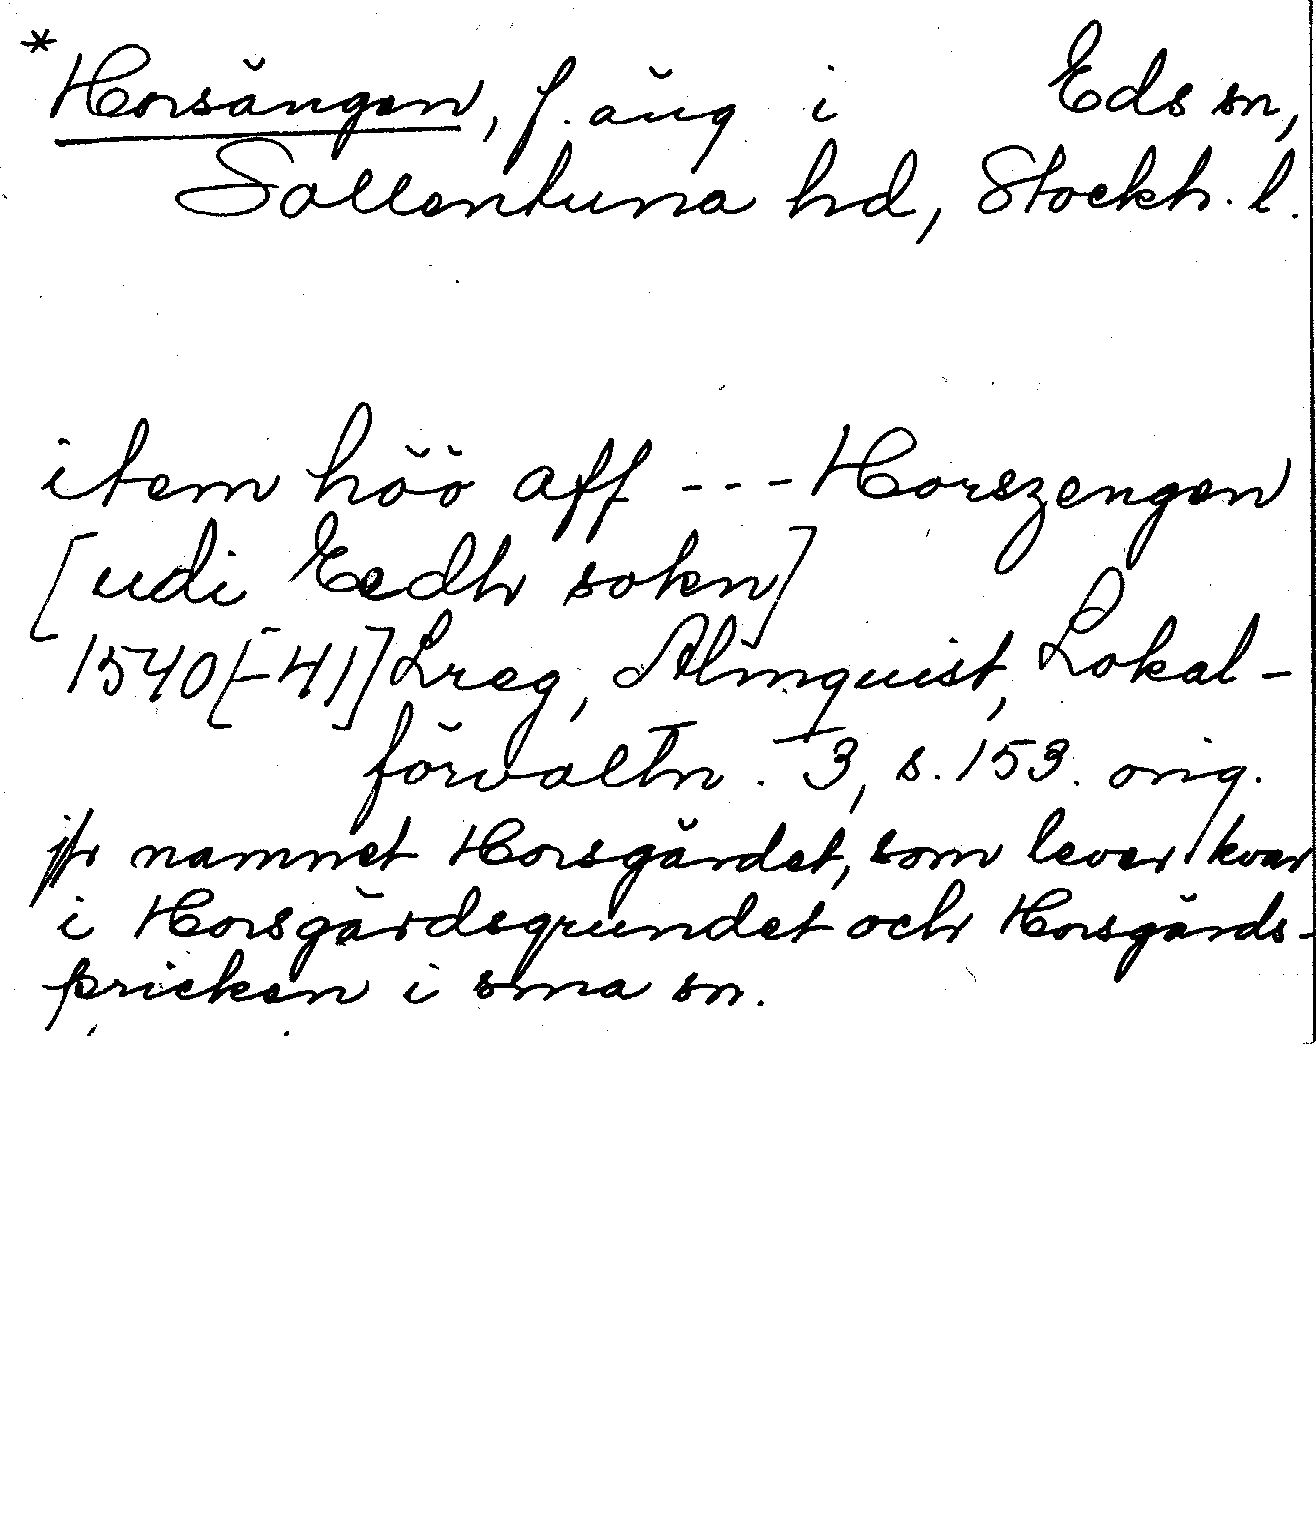 *Horsängen, f. äng i Eds sn,
Sollentuna hd, Stockh. l.
item höö aff --- Horszengen
[udi Eedh sokn]
1540[-41] Lreg, Almquist, Lokal-
förvaltn. 3, s. 153. orig.
jfr namnet Horsgärdet, som lever kvar
i Horsgärdsgrundet och Horsgärds-
pricken i sma sn.